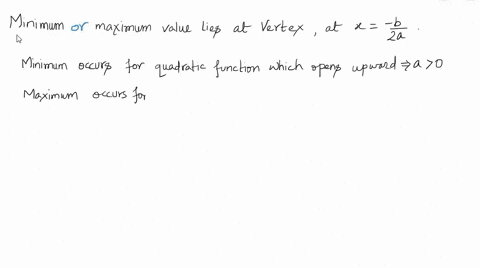 Minimum or maximum value lies at Vertex, at x = -b/2a.
Minimum occurs for quadratic function which opens upward ⇒ a > 0
Maximum occurs for